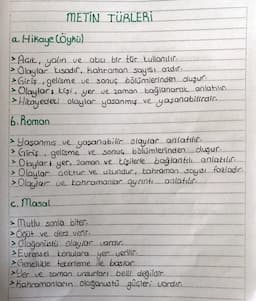 METİN TÜRLERİ
a. Hikaye (Öykü)
> Açık, yalın ve akıcı bir tür kullanılır.
> Olaylar kısadır, kahraman sayısı azdır.
> Giriş, gelişme ve sonuç bölümlerinden oluşur.
> Olaylar; kişi, yer ve zaman bağlanarak anlatılır.
> Hikayedeki olaylar yaşanmış ve yaşanabilirdir.
b. Roman
> Yaşanmış ve yaşanabilir olaylar anlatılır.
> Giriş, gelişme ve sonuç bölümlerinden oluşur.
> Olaylar; yer, zaman ve kişilerle bağlantılı anlatılır.
> Olaylar çoktur ve uzundur, kahraman sayısı fazladır.
> Olaylar ve kahramanlar ayrıntılı anlatılır.
c. Masal
> Mutlu sonla biter.
> Öğüt ve ders verir.
> Olağanüstü olaylar vardır.
> Evrensel konulara yer verilir.
> Genellikle tekerleme ile başlar.
> Yer ve zaman unsurları belli değildir.
> Kahramanların olağanüstü güçleri vardır.